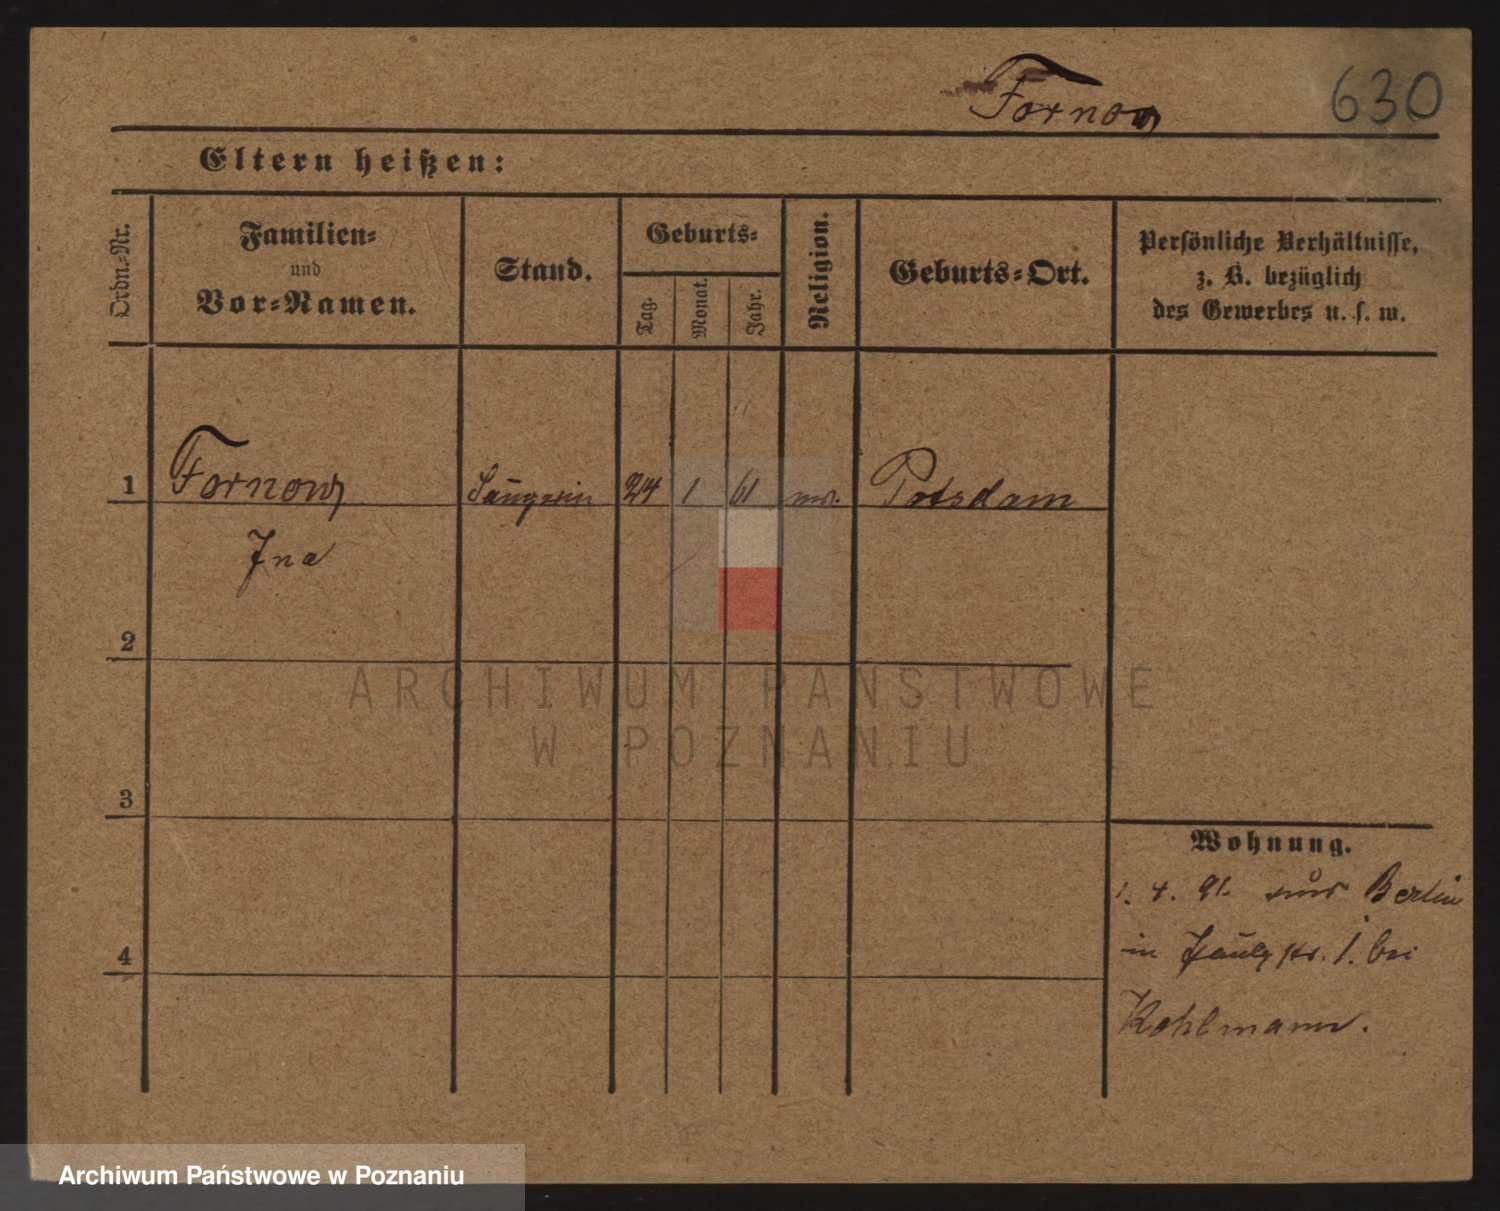 Fornow 630
Eltern heißen:
Ordn.-Nr.
Familien-
und
Vor-Namen.
Stand.
Geburts-
Tag.
Monat.
Jahr.
Religion.
Geburts-Ort.
Persönliche Verhältnisse,
z. B. bezüglich
des Gewerbes u. s. w.
1 Fornow Sängerin 24 1 61 Potsdam
Ina
2
ARCHIWUM PAŃSTWOWE
W POZNANIU
3
Wohnung.
1. 4. 91. Berlin
in 1. bei
4
Kohlmann.
Archiwum Państwowe w Poznaniu